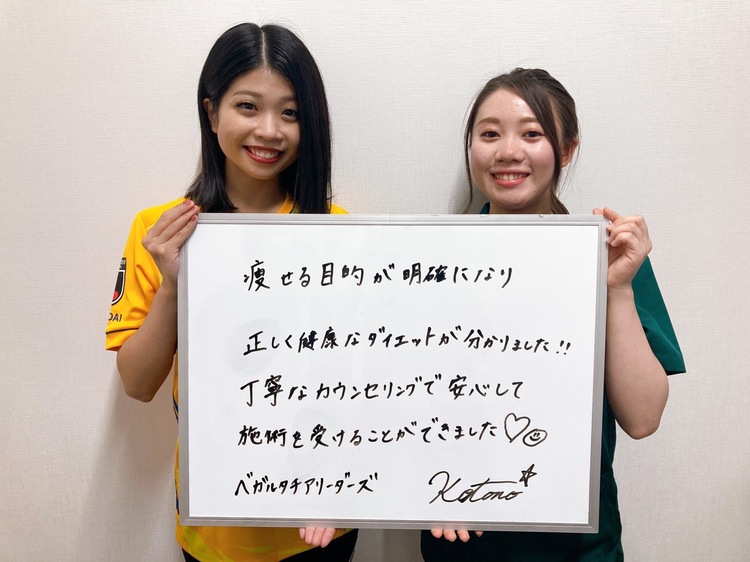 痩せる目的が明確になり
正しく健康なダイエットが分かりました!!
丁寧なカウンセリングで安心して
施術を受けることができました♡☺
ベガルタチアリーダーズ Kotono☆
DAI